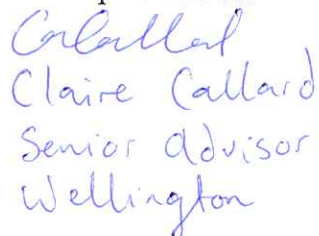 Claire Callard
Senior advisor
Wellington